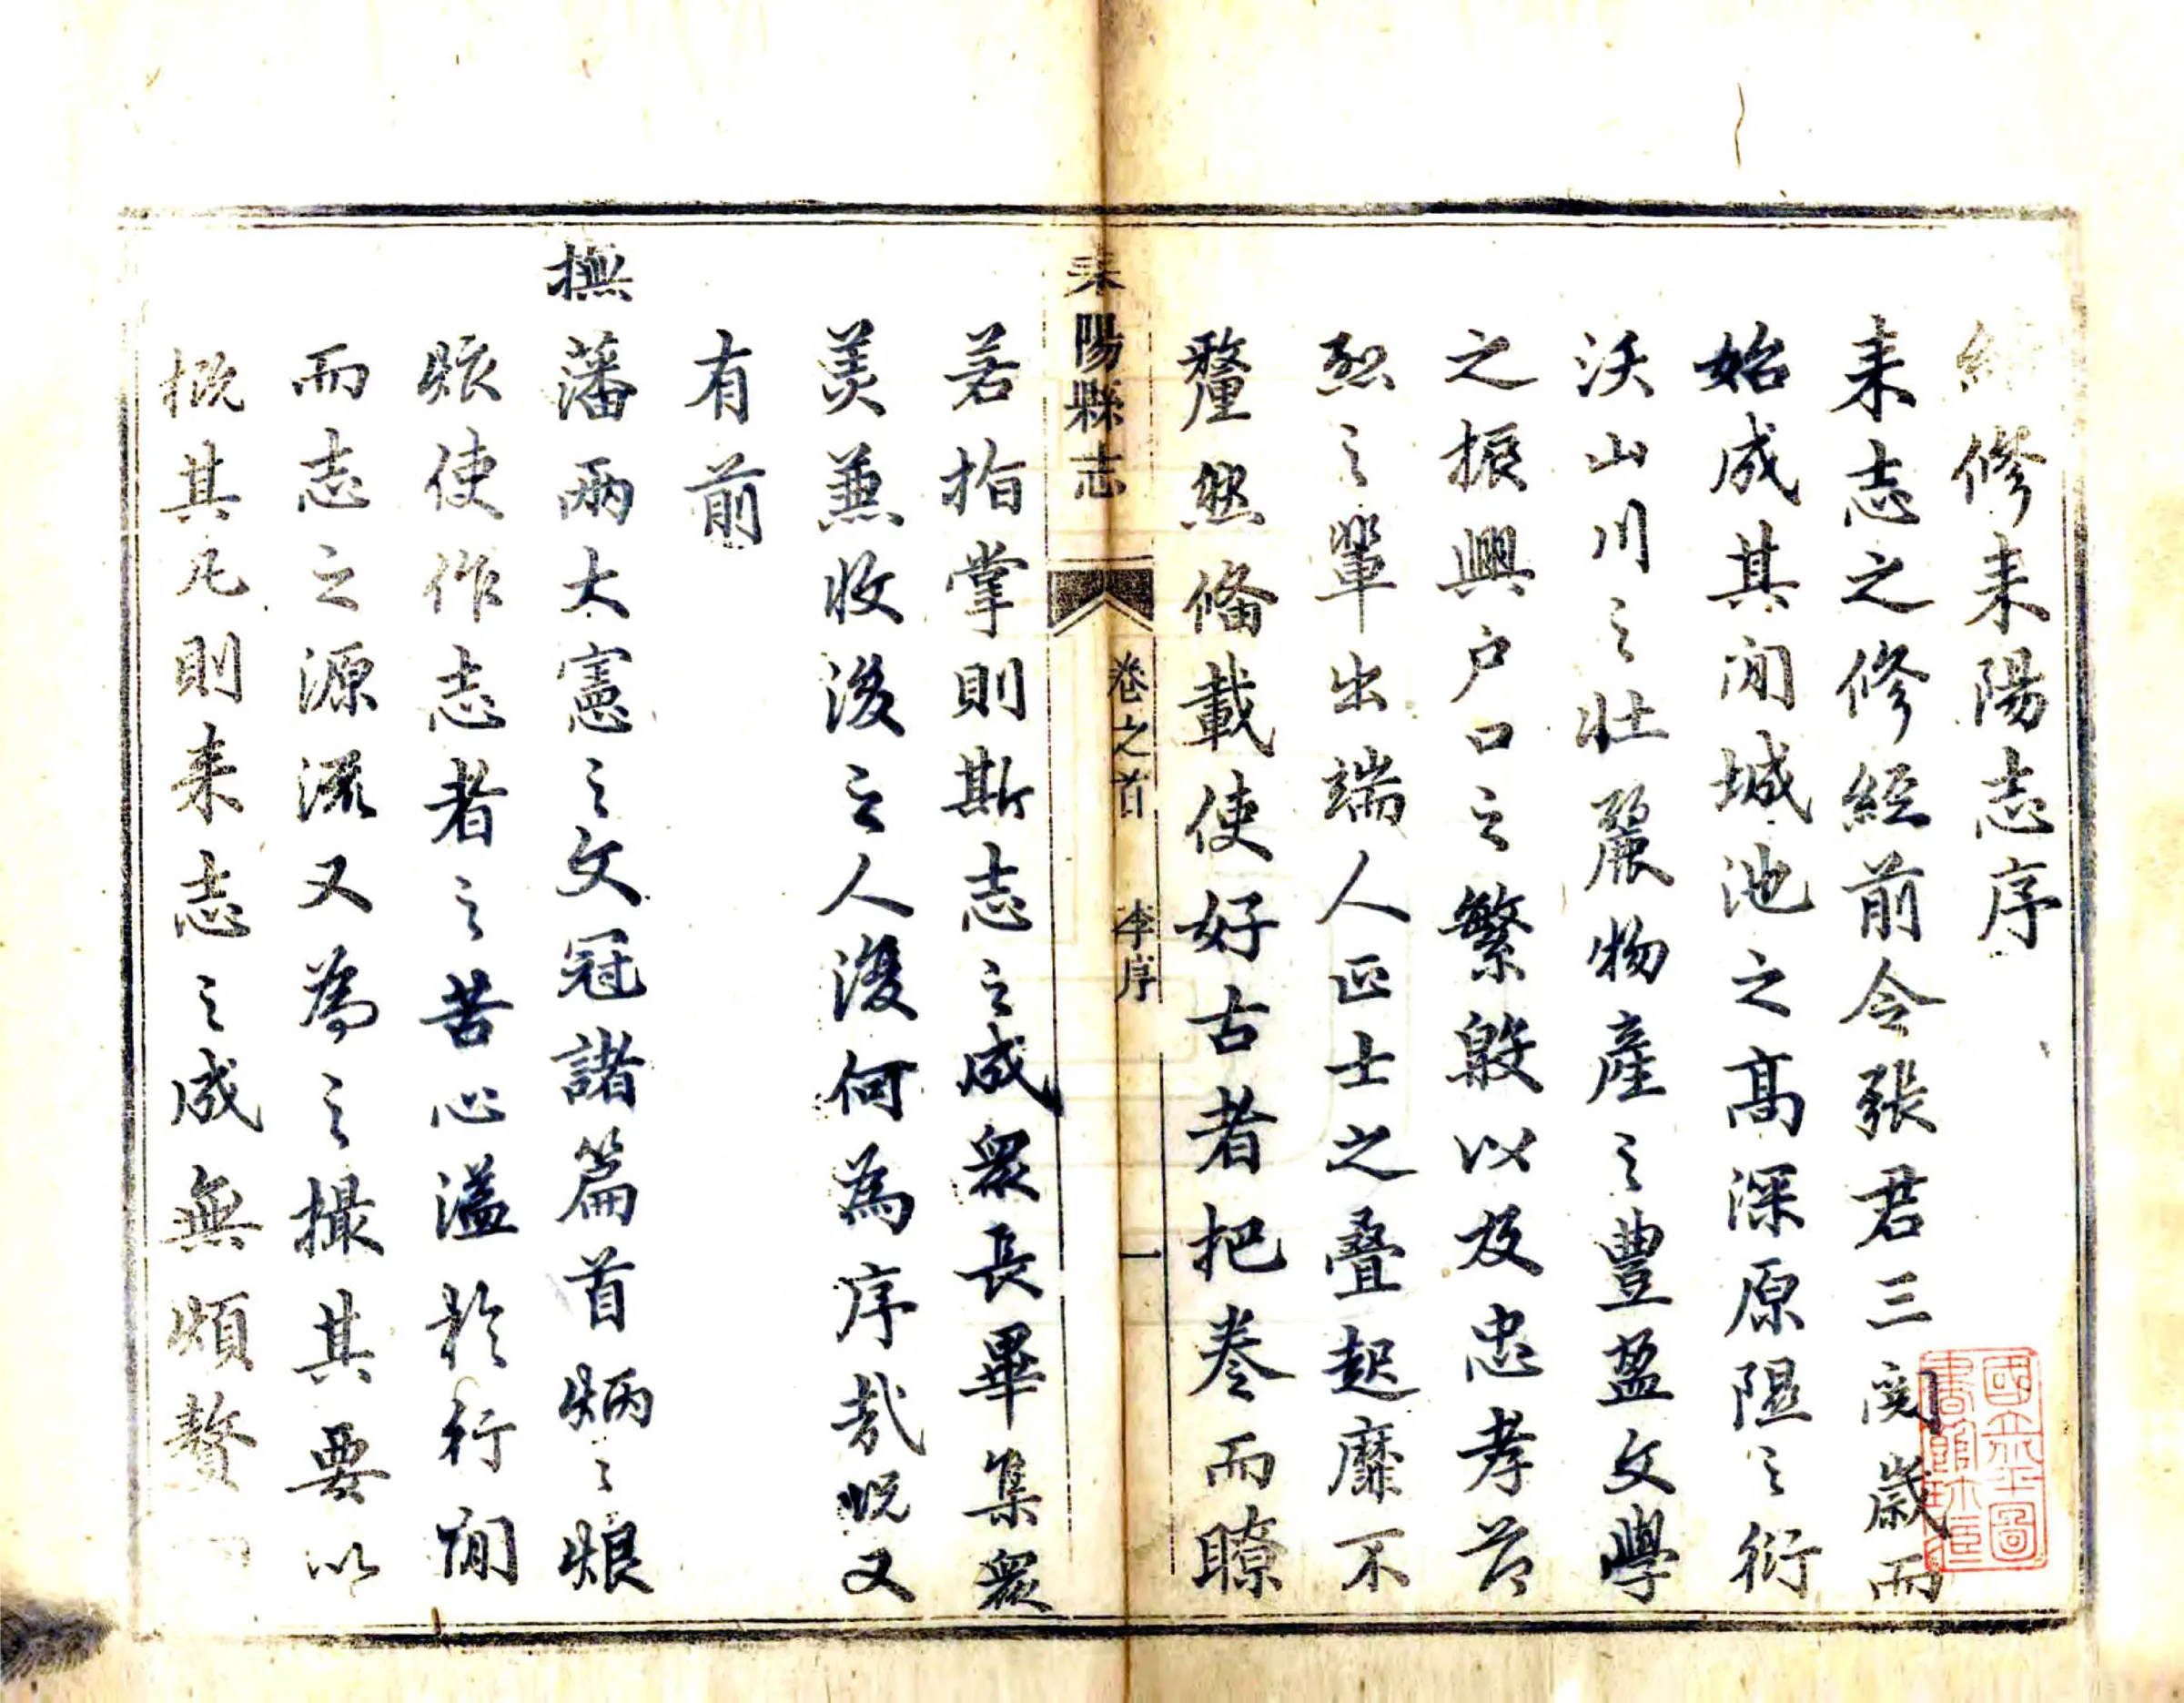 修耒陽志序
耒志之修經前令張君三閱歲而
始成其間城池之高深原隰之衍
沃山川之壯麗物產之豐盈文學
之振興户口之繁殷以及忠孝節
烈之輩出端人正士之疊起靡不
釐然俻載使好古者把卷而瞭
耒陽縣志
卷之首
李序
一
若指掌則斯志之成衆長畢集衆
美兼收後之人復何為序哉既又
有前
撫藩兩大憲之文冠諸篇首炳之烺
烺使作志者之苦心溢於行間
而志之源流又為之撮其要以
概其凡則耒志之成無煩贅
國立北平圖
書館珍藏